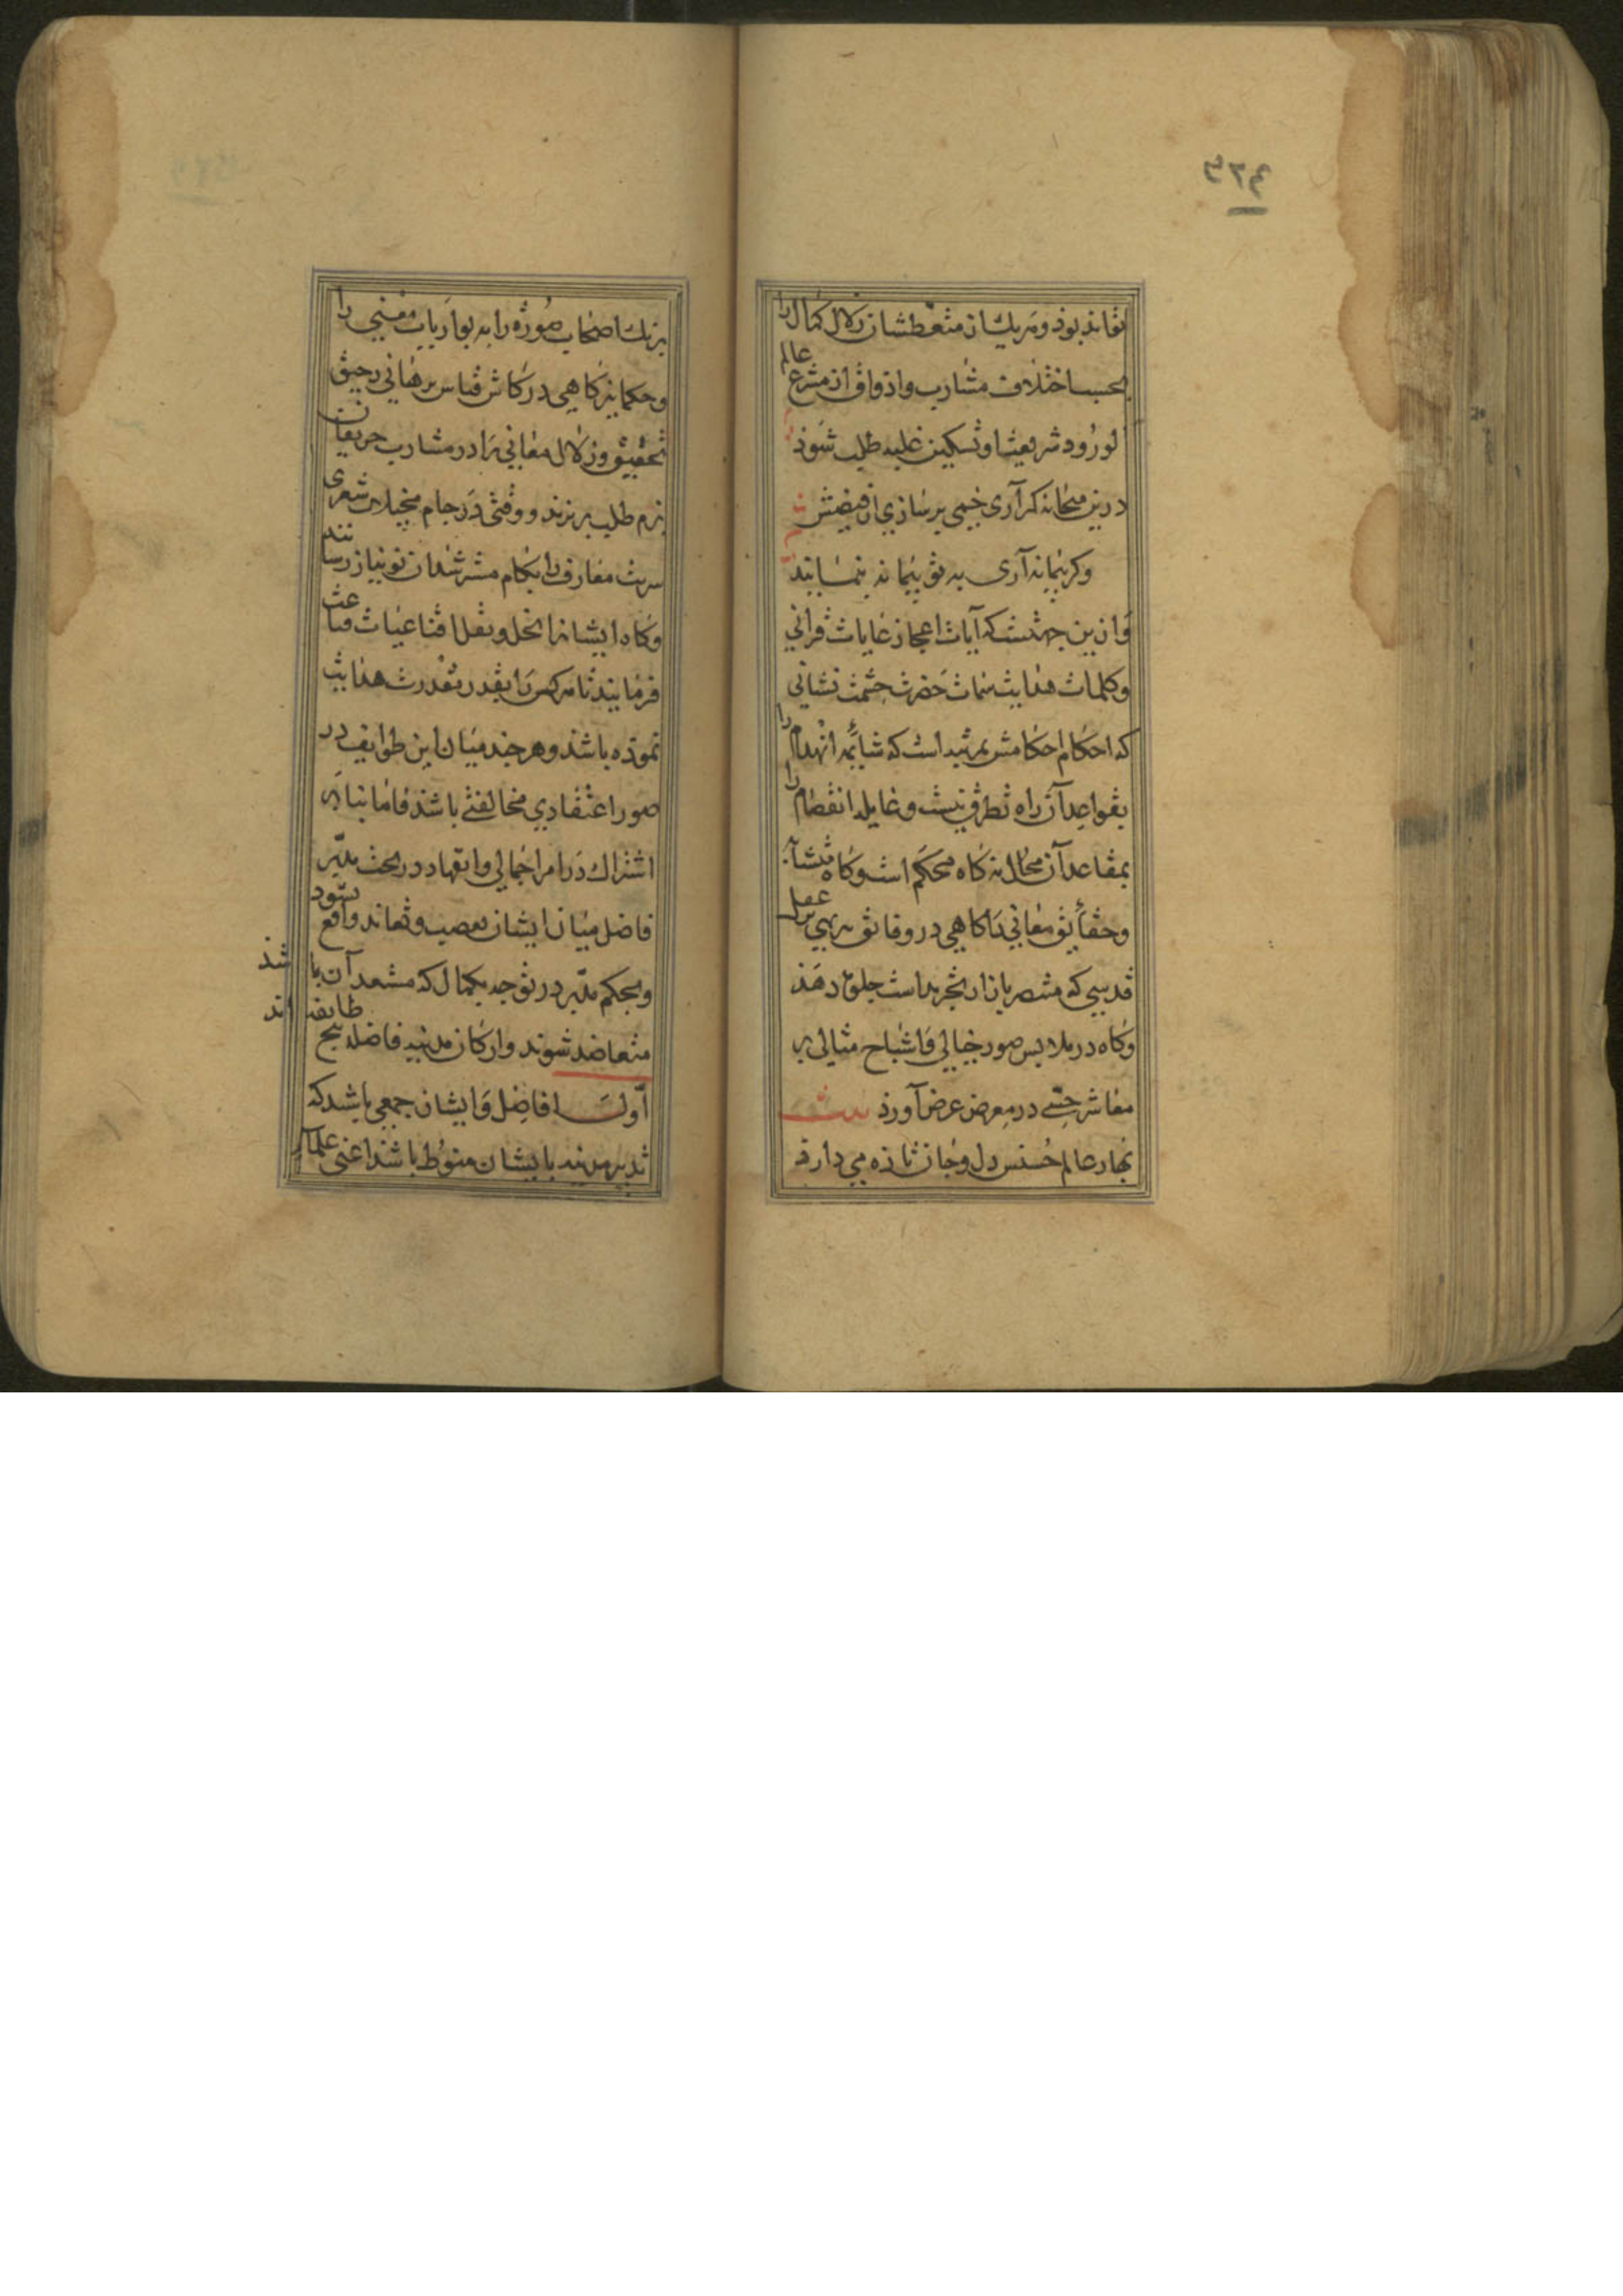 تواند بود و هر یک از متعطشان زلال کمال را
بحسب اختلاف مشارب و اذواق از مشرع عالم
لورود شریعت او تسکین غلبه طلب شود
درین میخانه کر آری خمی پر سازی از فیضش
وکر پیمانه آری به تو پیمانه پیمایند
و ازین جهتست که آیات اعجاز غایات قرآنی
و کلمات هدایت سمات حضرت ختمت نشانی
که احکام احکامش بمرتبه است که شائبه انهدام را
بقواعد آن راه تطرق نیست و غایله انفصام را
بمقاعد آن مجال نه کاه محکم است و کاه متشابه
و حقایق معانی را کاهی در وقایق برهی عقل
قدسی که متصر بازار تجرید است جلوه دهد
و کاه در ملابس صور خیالی و اشباح مثالی بر
معاشر حسی در معرض عرض آورد بیت
بهار عالم حسنش دل و جان تازه می دارد
برنک اصحاب صوره را به بو ارباب معنی را
و حکما نیز کاهی در کاس قیاس برهانی رحیق
تحقیق و زلال معانی را در مشارب حریفان
بزم طلب ریزند و وقتی در جام مخیلات شعری
شربت معارف را بکام مسترشدان نو نیاز رسانند
و کاه ایشانرا بحل و نقل اقناعیات قناعت
فرمایند تا هرکس را بقدر قدرت هدایت
نموده باشند و هر چند میان این طوایف در
صور اعتقادی مخالفتی باشد فاما بنا بر
اشتراک در امر اجمالی و انقیاد در تحت مدبر
فاضل میان ایشان تعصب و تعاند واقع نشود
و بحکم مدبر در توجه بکمال که مستعد آن باشند
متعاضد شوند و ارکان مدنیه فاضله پنج طایفه اند
اول افاضل و ایشان جمعی باشند که
تدبیر مدینه بایشان منوط باشد اعنی علماء